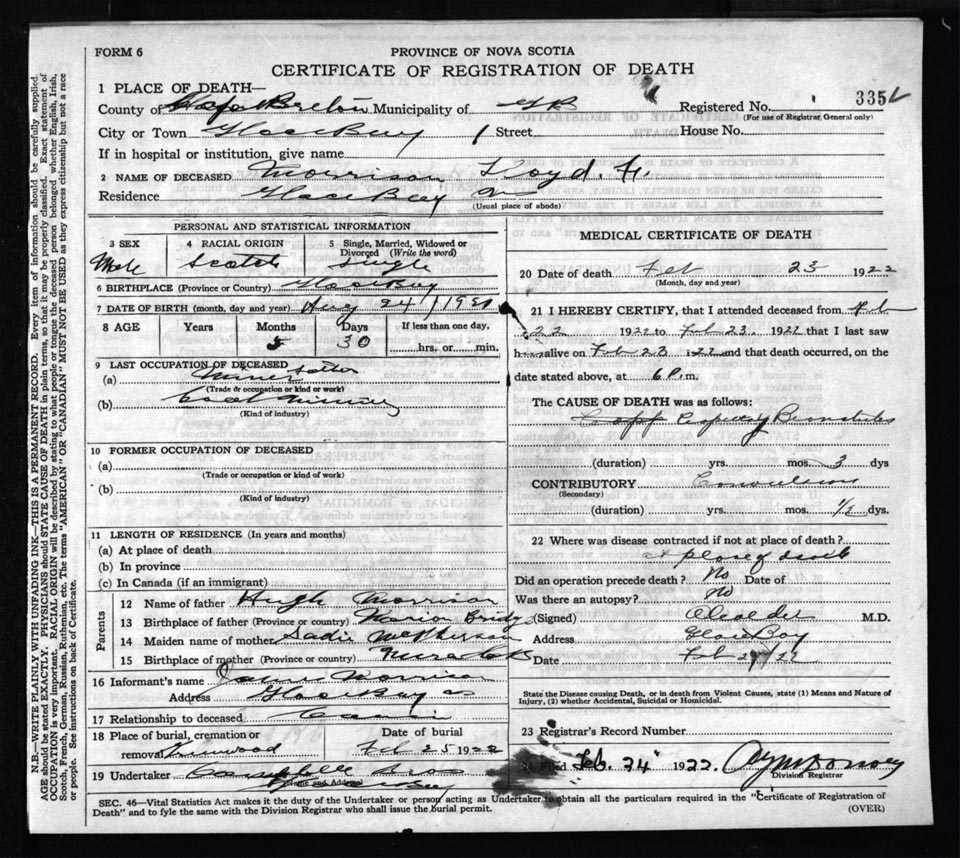 FORM 6
PROVINCE OF NOVA SCOTIA
CERTIFICATE OF REGISTRATION OF DEATH
1 PLACE OF DEATH—
County of Cape Breton Municipality of G B Registered No. 335
(For use of Registrar General only)
City or Town Glace Bay Street House No.
If in hospital or institution, give name
2 NAME OF DECEASED Morrison Lloyd. H.
Residence Glace Bay
(Usual place of abode)
PERSONAL AND STATISTICAL INFORMATION
3 SEX 4 RACIAL ORIGIN 5 Single, Married, Widowed or Divorced (Write the word)
Male Scotch Single
6 BIRTHPLACE (Province or Country) Glace Bay
7 DATE OF BIRTH (month, day and year) Aug 24/1921
8 AGE Years Months Days If less than one day,
5 30 hrs. or min.
9 LAST OCCUPATION OF DECEASED
(a) Miner father
(Trade or occupation or kind or work)
(b) Coal Mining
(Kind of industry)
10 FORMER OCCUPATION OF DECEASED
(a)
(Trade or occupation or kind of work)
(b)
(Kind of industry)
11 LENGTH OF RESIDENCE (In years and months)
(a) At place of death
(b) In province
(c) In Canada (if an immigrant)
Parents
12 Name of father Hugh Morrison
13 Birthplace of father (Province or country) Marion Bridge
14 Maiden name of mother Sadie McPherson
15 Birthplace of mother (Province or country)
16 Informant's name Morrison
Address Glace Bay
17 Relationship to deceased
18 Place of burial, cremation or removal Date of burial
Feb 25 1922
19 Undertaker Campbell Bros
MEDICAL CERTIFICATE OF DEATH
20 Date of death Feb 23 1922
(Month, day and year)
21 I HEREBY CERTIFY, that I attended deceased from Feb
22 1922 to Feb 23. 1922 that I last saw
h alive on Feb 23 1922 and that death occurred, on the
date stated above, at 6 P. m.
The CAUSE OF DEATH was as follows:
(duration) yrs. mos. 3 dys
CONTRIBUTORY Convulsions
(Secondary)
(duration) yrs. mos. 1/2 dys.
22 Where was disease contracted if not at place of death?
at place of death
Did an operation precede death? No Date of
Was there an autopsy? No
(Signed) M.D.
Address Glace Bay
Date Feb 24/22
State the Disease causing Death, or in death from Violent Causes, state (1) Means and Nature of
Injury, (2) whether Accidental, Suicidal or Homicidal.
23 Registrar's Record Number
Filed Feb. 24 1922.
Division Registrar
SEC. 46—Vital Statistics Act makes it the duty of the Undertaker or person acting as Undertaker to obtain all the particulars required in the "Certificate of Registration of
Death" and to fyle the same with the Division Registrar who shall issue the burial permit.
(OVER)
N.B.—WRITE PLAINLY WITH UNFADING INK—THIS IS A PERMANENT RECORD. Every item of information should be carefully supplied.
AGE should be stated EXACTLY. PHYSICIANS should STATE CAUSE OF DEATH in plain terms, so that it may be properly classified. Exact statement of
OCCUPATION is very important. RACIAL ORIGIN will be described by stating to what people or tongue the deceased person belonged whether English, Irish,
Scotch, French, German, Russian, Ruthenian, etc. The terms "AMERICAN" OR "CANADIAN" MUST NOT BE USED as they express citizenship but not a race
or people. See instructions on back of Certificate.